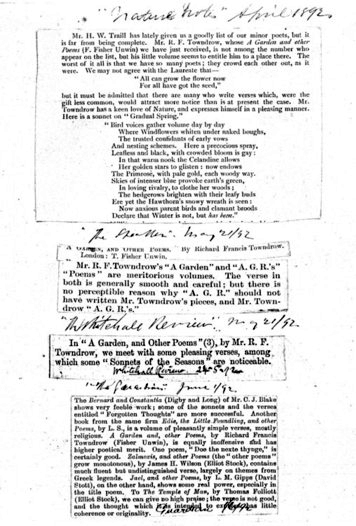 "Nature Notes" April 1892
Mr. H. W. Traill has lately given us a goodly list of our minor poets, but it
is far from being complete. Mr. R. F. Towndrow, whose A Garden and other
Poems (F. Fisher Unwin) we have just received, is not among the number who
appear on the list, but his little volume seems to entitle him to a place there. The
worst of it all is that we have so many poets; they crowd each other out, as it
were. We may not agree with the Laureate that—
"All can grow the flower now
For all have got the seed,"
but it must be admitted that there are many who write verses which, were the
gift less common, would attract more notice than is at present the case. Mr.
Towndrow has a keen love of Nature, and expresses himself in a pleasing manner.
Here is a sonnet on "Gradual Spring."
"Bird voices gather volume day by day
Where Windflowers whiten under naked boughs,
The trusted confidants of early vows
And nesting schemes. Here a precocious spray,
Leafless and black, with crowded bloom is gay:
In that warm nook the Celandine allows
Her golden stars to glisten: now endows
The Primrose, with pale gold, each woody way.
Skies of intenser blue provoke earth's green,
In loving rivalry, to clothe her woods;
The hedgerows brighten with their leafy buds
Ere yet the Hawthorn's snowy wreath is seen:
Now anxious parent birds and clamant broods
Declare that Winter is not, but has been."
"The Speaker" May 21/92
A GARDEN, AND OTHER POEMS. By Richard Francis Towndrow.
London: T. Fisher Unwin.
Mr. R. F. Towndrow's "A Garden" and "A. G. R.'s"
"Poems" are meritorious volumes. The verse in
both is generally smooth and careful; but there is
no perceptible reason why "A. G. R." should not
have written Mr. Towndrow's pieces, and Mr. Town-
drow "A. G. R.'s."
"The Whitehall Review" May 21/92.
In "A Garden, and Other Poems" (3), by Mr. R. F.
Towndrow, we meet with some pleasing verses, among
which some "Sonnets of the Seasons" are noticeable.
Whitehall Review
"The Guardian" June 1/92.
The Bernard and Constantia (Digby and Long) of Mr. C. J. Blake
shows very feeble work; some of the sonnets and the verses
entitled "Forgotten Thoughts" are more successful. Another
book from the same firm Edie, the Little Foundling, and other
Poems, by L. S., is a volume of pleasantly simple verses, mostly
religious. A Garden and other Poems, by Richard Francis
Towndrow (Fisher Unwin), is equally inoffensive and has
higher poetical merit. One poem, "Doe the nexte thynge," is
certainly good. Zalmoxis, and other Poems (the "other poems"
grow monotonous), by James H. Wilson (Elliot Stock), contains
much fluent but undistinguished verse, largely on themes from
Greek legends. Jael, and other Poems, by L. M. Gipps (David
Stott), on the other hand, shows some real power, especially in
the title poem. To The Temple of Man, by Thomas Folliott
(Elliot Stock), we can give no high praise; the verse is not good,
and the thought which it is intended to express has little
coherence or originality. Guardian